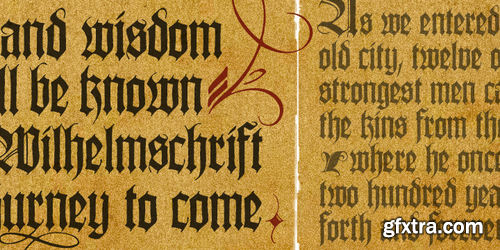 and wisdom
ll be known
Wilhelmschrift
urney to come
As we entered
old city, twelve o
strongest men ca
the kins from th
where he onc
two hundred yea
forth
gfxtra.com